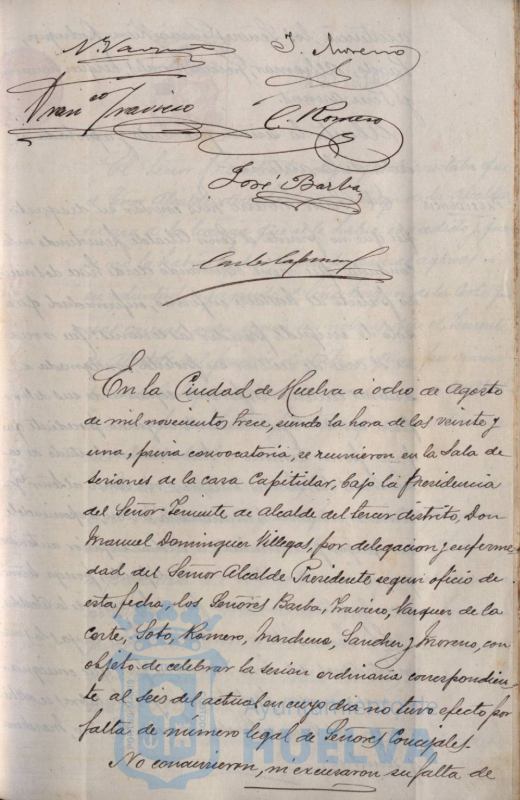 J. Moreno
Franco Travieso
C. Romero
José Barba
En la Ciudad de Huelva á ocho de Agosto
de mil novecientos trece, siendo la hora de las veinte y
una, previa convocatoria, se reunieron en la Sala de
sesiones de la casa Capitular, bajo la Presidencia
del Señor Teniente de Alcalde del tercer distrito, Don
Manuel Dominguez Villegas, por delegacion y enferme-
dad del Señor Alcalde Presidente segun oficio de
esta fecha, los Señores Barba, Travieso, Vazquez de la
Corte, Soto, Romero, Marchena, Sanchez y Moreno, con
objeto de celebrar la sesion ordinaria correspondien-
te al seis del actual en cuyo dia no tuvo efecto por
falta de número legal de Señores Concejales.
No concurrieron, ni excusaron su falta de
Ayuntamiento de
HUELVA